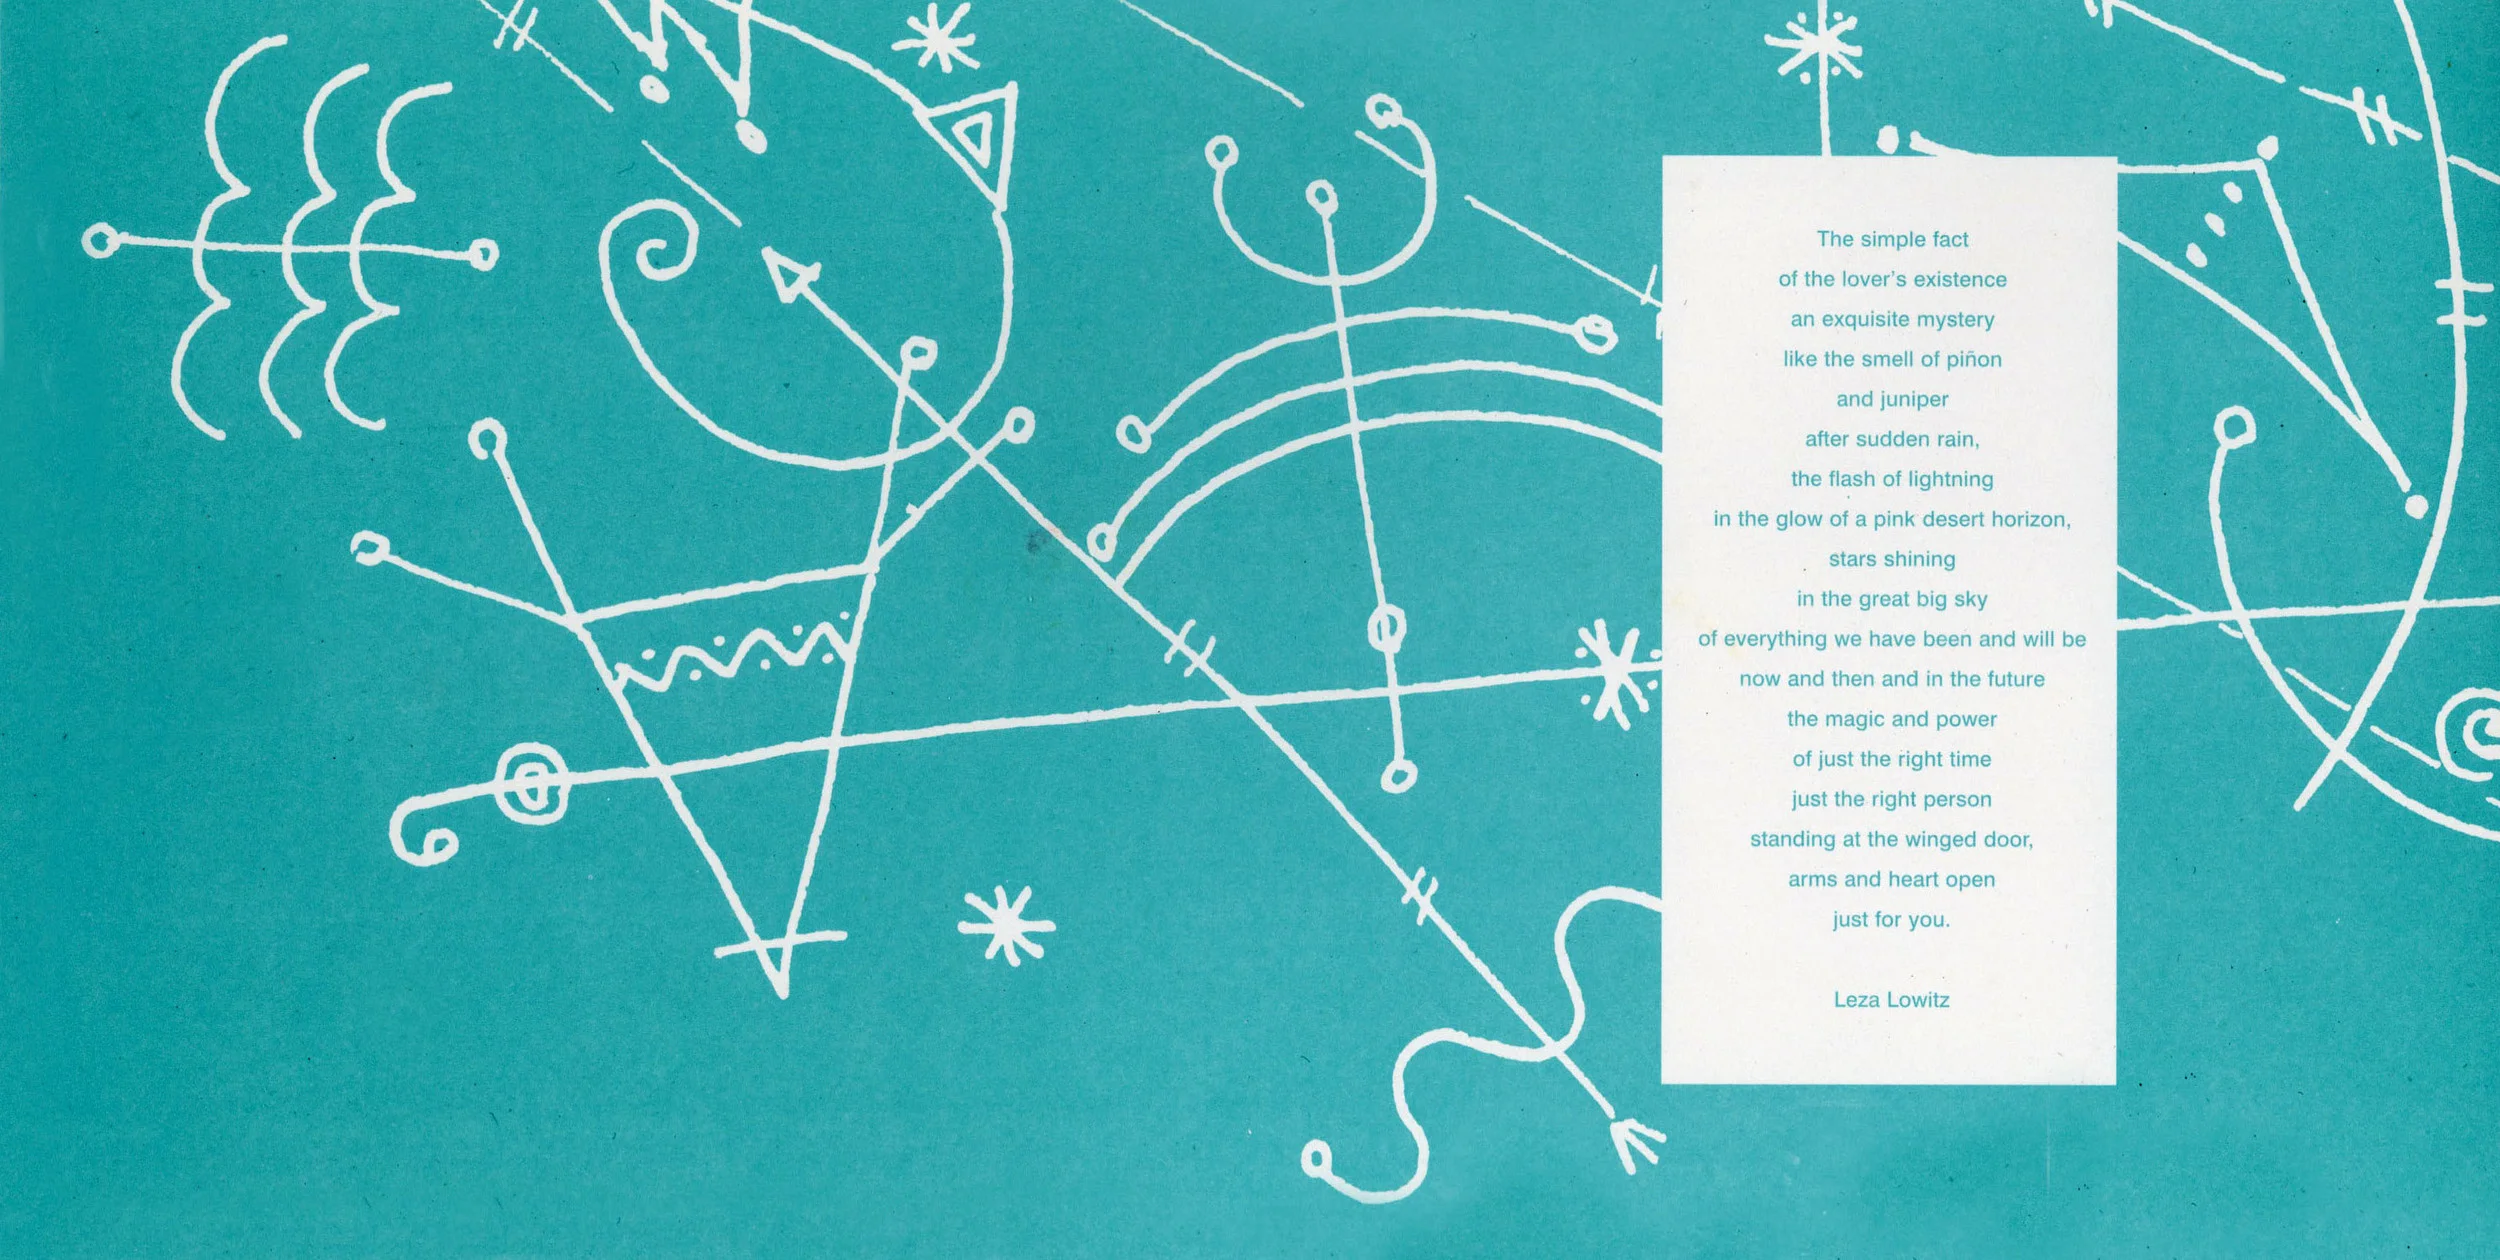 The simple fact
of the lover’s existence
an exquisite mystery
like the smell of piñon
and juniper
after sudden rain,
the flash of lightning
in the glow of a pink desert horizon,
stars shining
in the great big sky
of everything we have been and will be
now and then and in the future
the magic and power
of just the right time
just the right person
standing at the winged door,
arms and heart open
just for you.
Leza Lowitz